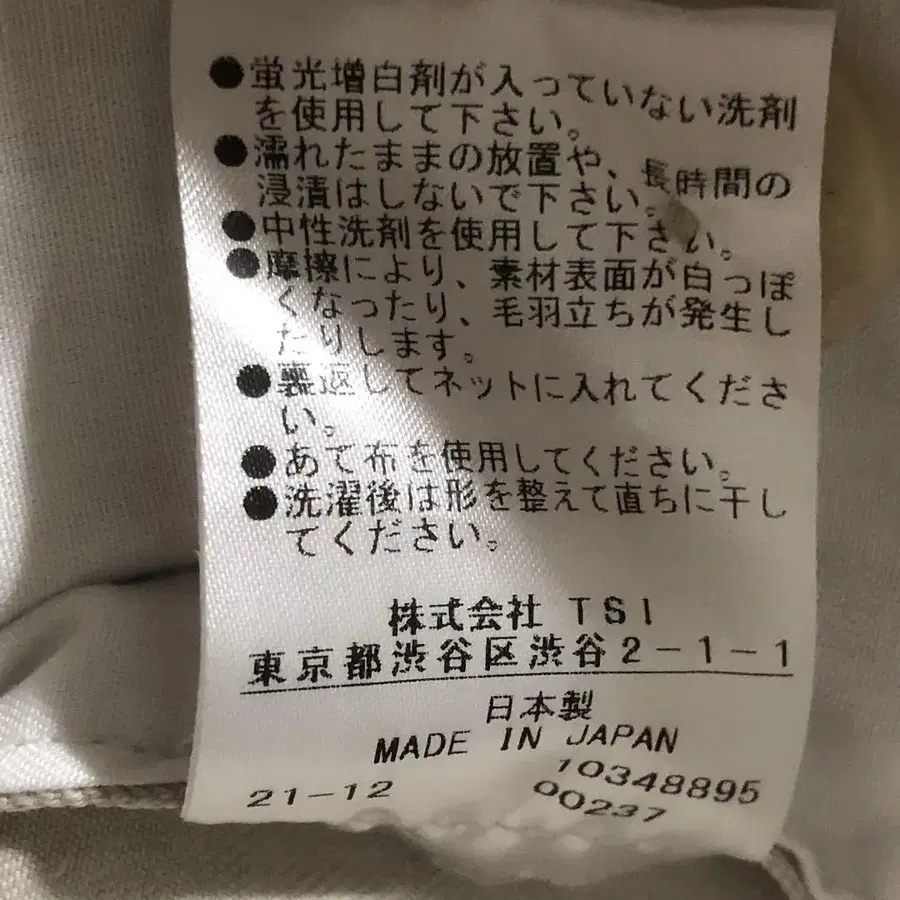 ●蛍光増白剤が入っていない洗剤
を使用して下さい。
●濡れたままの放置や、長時間の
浸漬はしないで下さい。
●中性洗剤を使用して下さい。
●摩擦により、素材表面が白っぽ
くなったり、毛羽立ちが発生し
たりします。
●裏返してネットに入れてくださ
い。
●あて布を使用してください。
●洗濯後は形を整えて直ちに干し
てください。
株式会社 TSI
東京都渋谷区渋谷2-1-1
日本製
MADE IN JAPAN
21-12 10348895
00237